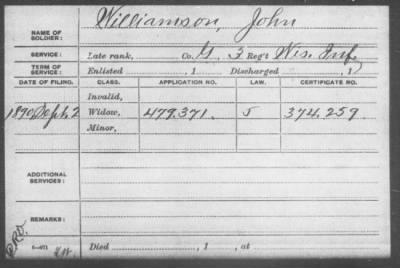 Williamson, John
NAME OF SOLDIER:
SERVICE: Late rank, Co. G 3 Reg't Wis. Inf.
TERM OF SERVICE: Enlisted , 1 Discharged , 1
DATE OF FILING. CLASS. APPLICATION NO. LAW. CERTIFICATE NO.
Invalid,
1890 Sept. 2 Widow, 479.371. 374.259
Minor,
ADDITIONAL SERVICES:
REMARKS:
Died , 1 , at